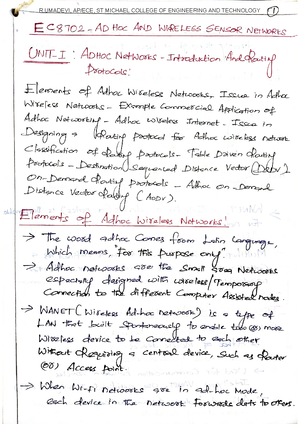 R.UMADEVI, AP/ECE, ST MICHAEL COLLEGE OF ENGINEERING AND TECHNOLOGY 1
EC8702 - AD HOC AND WIRELESS SENSOR NETWORKS
UNIT-I : ADHOC NETWORKS - Introduction And Routing
Protocols:
Elements of Adhoc Wireless Networks, Issues in Adhoc
Wireless Networks - Example Commercial Application of
Adhoc Networking - Adhoc Wireless Internet - Issues in
Designing a Routing protocol for Adhoc wireless network
Classification of Routing protocols - Table Driven Routing
Protocols - Destination Sequenced Distance Vector (DSDV)
On-Demand Routing protocols - Adhoc on Demand
Distance Vector Routing (AODV).
Elements of Adhoc Wireless Networks:
→ The word adhoc Comes from Latin Language,
which means, "for this Purpose only".
→ Adhoc networks are the Small area Networks
especially designed with wireless/Temporary
Connection to the different Computer Assisted nodes.
→ WANET (Wireless Adhoc network) is a type of
LAN that built Spontaneously to enable two (or) more
Wireless device to be Connected to each other
Without Requiring a central device, such as Router
(or) Access Point.
→ When Wi-Fi networks are in ad-hoc mode,
each device in the network forwards data to others.